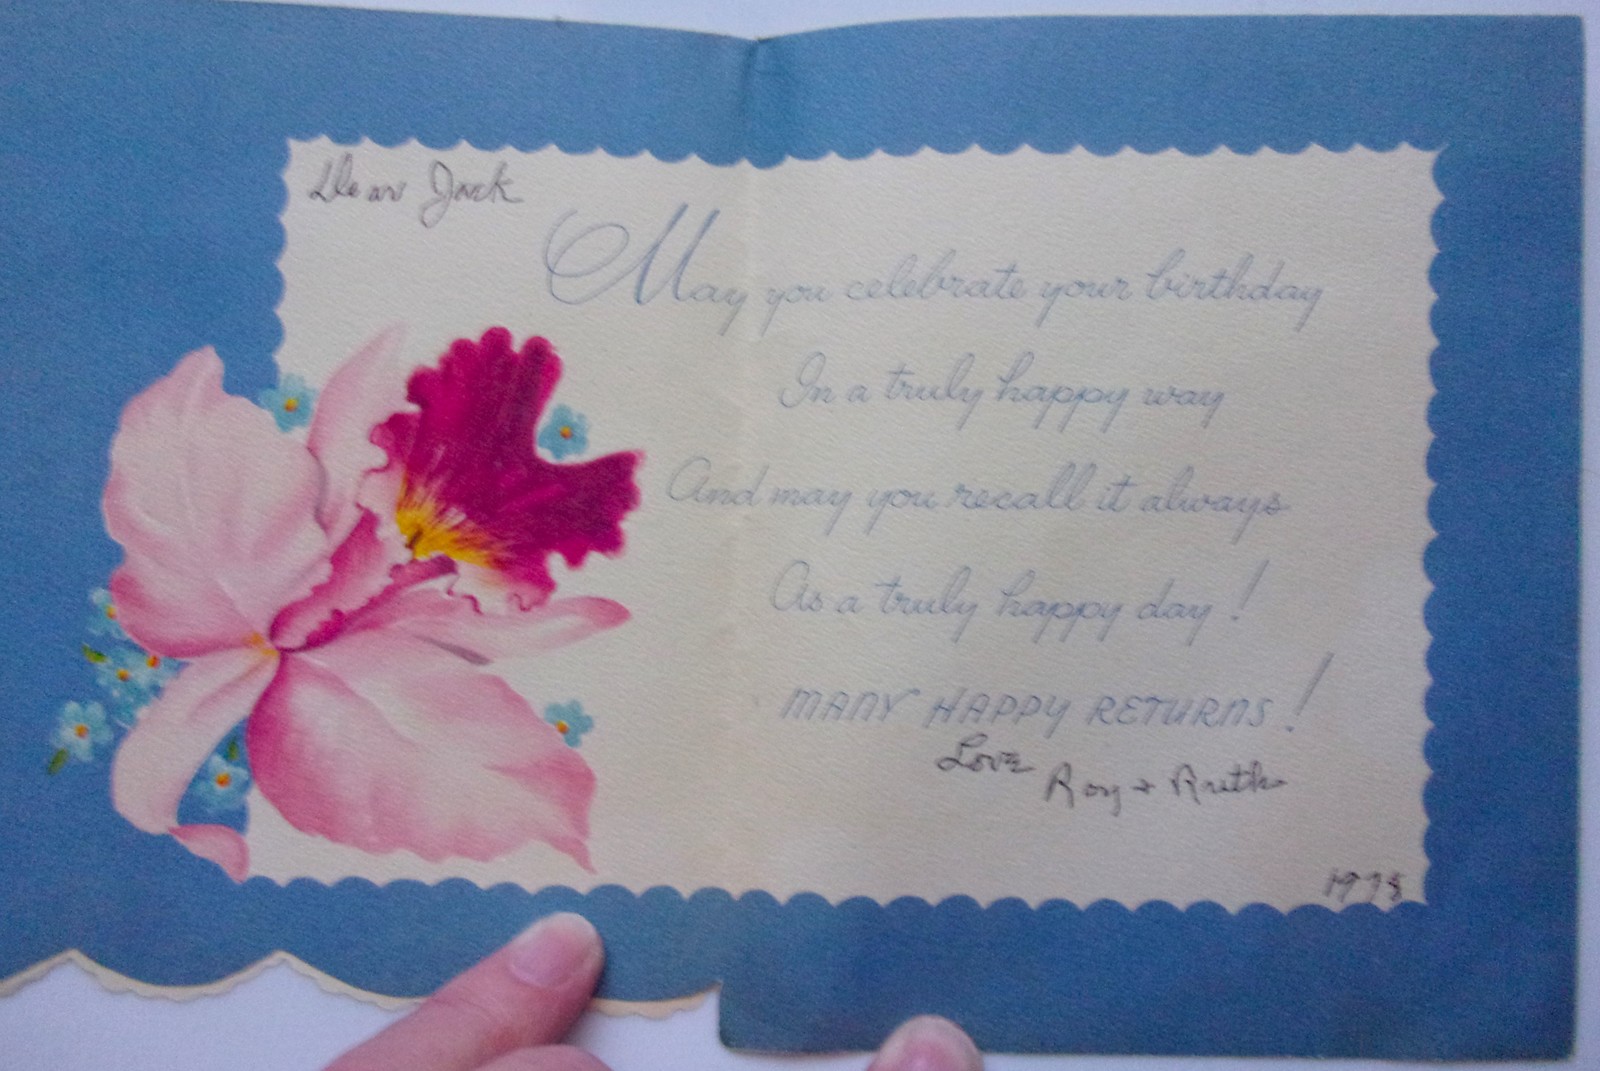 Dear Jack
May you celebrate your birthday
In a truly happy way
And may you recall it always
As a truly happy day!
MANY HAPPY RETURNS!
Love
Roy + Ruth
1978